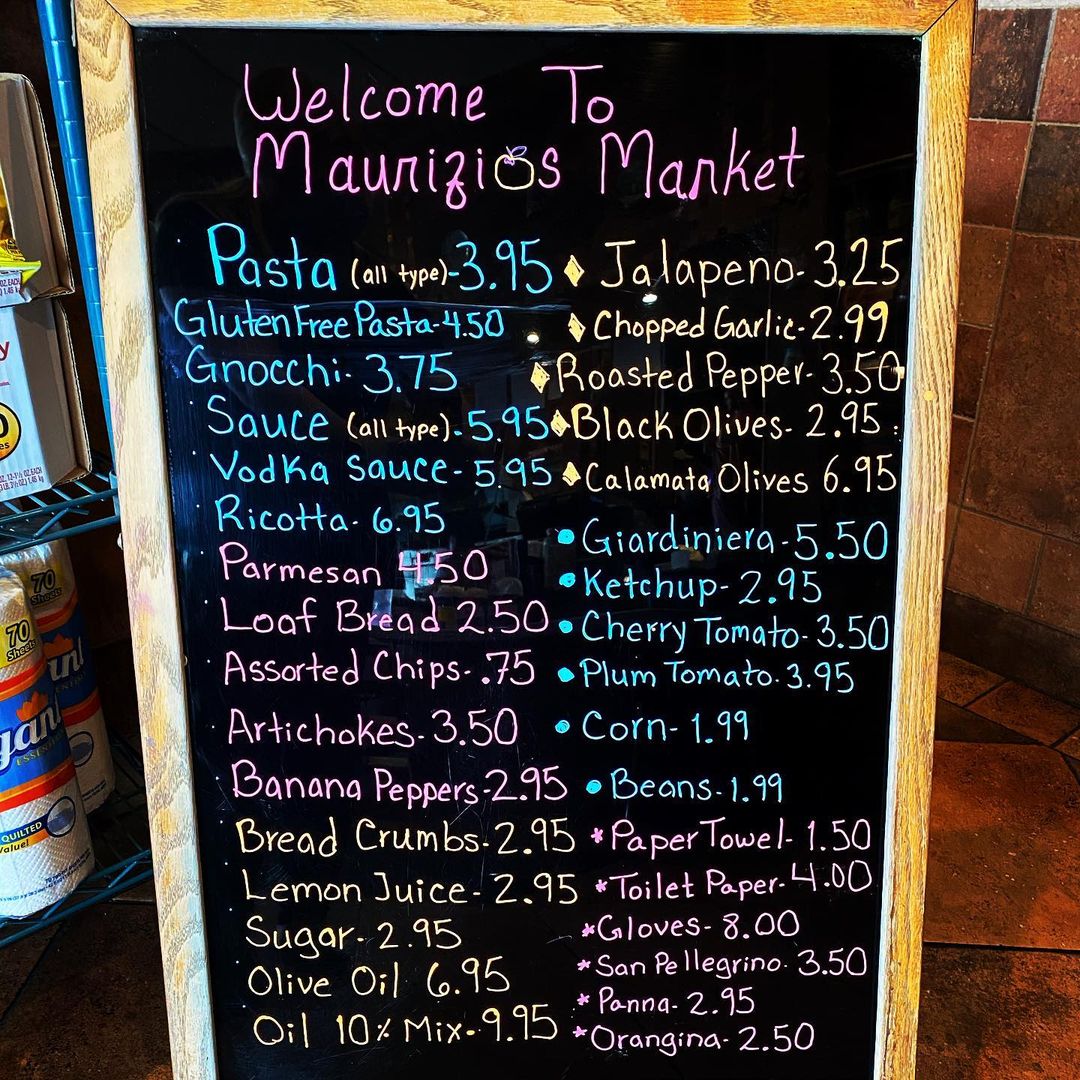 Welcome To
Maurizios Market
Pasta (all type)-3.95
Gluten Free Pasta-4.50
Gnocchi- 3.75
Sauce (all type)-5.95
Vodka Sauce-5.95
Ricotta-6.95
Parmesan 4.50
Loaf Bread 2.50
Assorted Chips-.75
Artichokes-3.50
Banana Peppers-2.95
Bread Crumbs-2.95
Lemon Juice-2.95
Sugar-2.95
Olive Oil 6.95
Oil 10% Mix-9.95
Jalapeno-3.25
Chopped Garlic-2.99
Roasted Pepper-3.50
Black Olives-2.95
Calamata Olives 6.95
Giardiniera-5.50
Ketchup-2.95
Cherry Tomato-3.50
Plum Tomato-3.95
Corn-1.99
Beans-1.99
*Paper Towel-1.50
*Toilet Paper-4.00
*Gloves-8.00
*San Pellegrino-3.50
*Panna-2.95
*Orangina-2.50
70
Sheets
70
Sheets
QUILTED